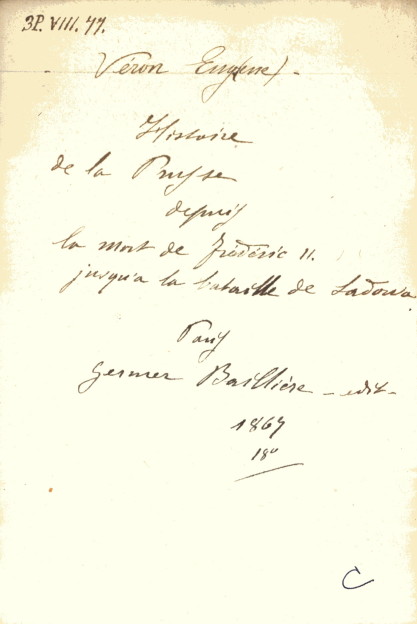 3P. VIII. 77.
Véron Eugène) -
Histoire
de la Prusse
depuis
la mort de Frédéric II.
jusqu'a la bataille de Sadowa
Paris
Germer Baillière - edit -
1867
18º
C